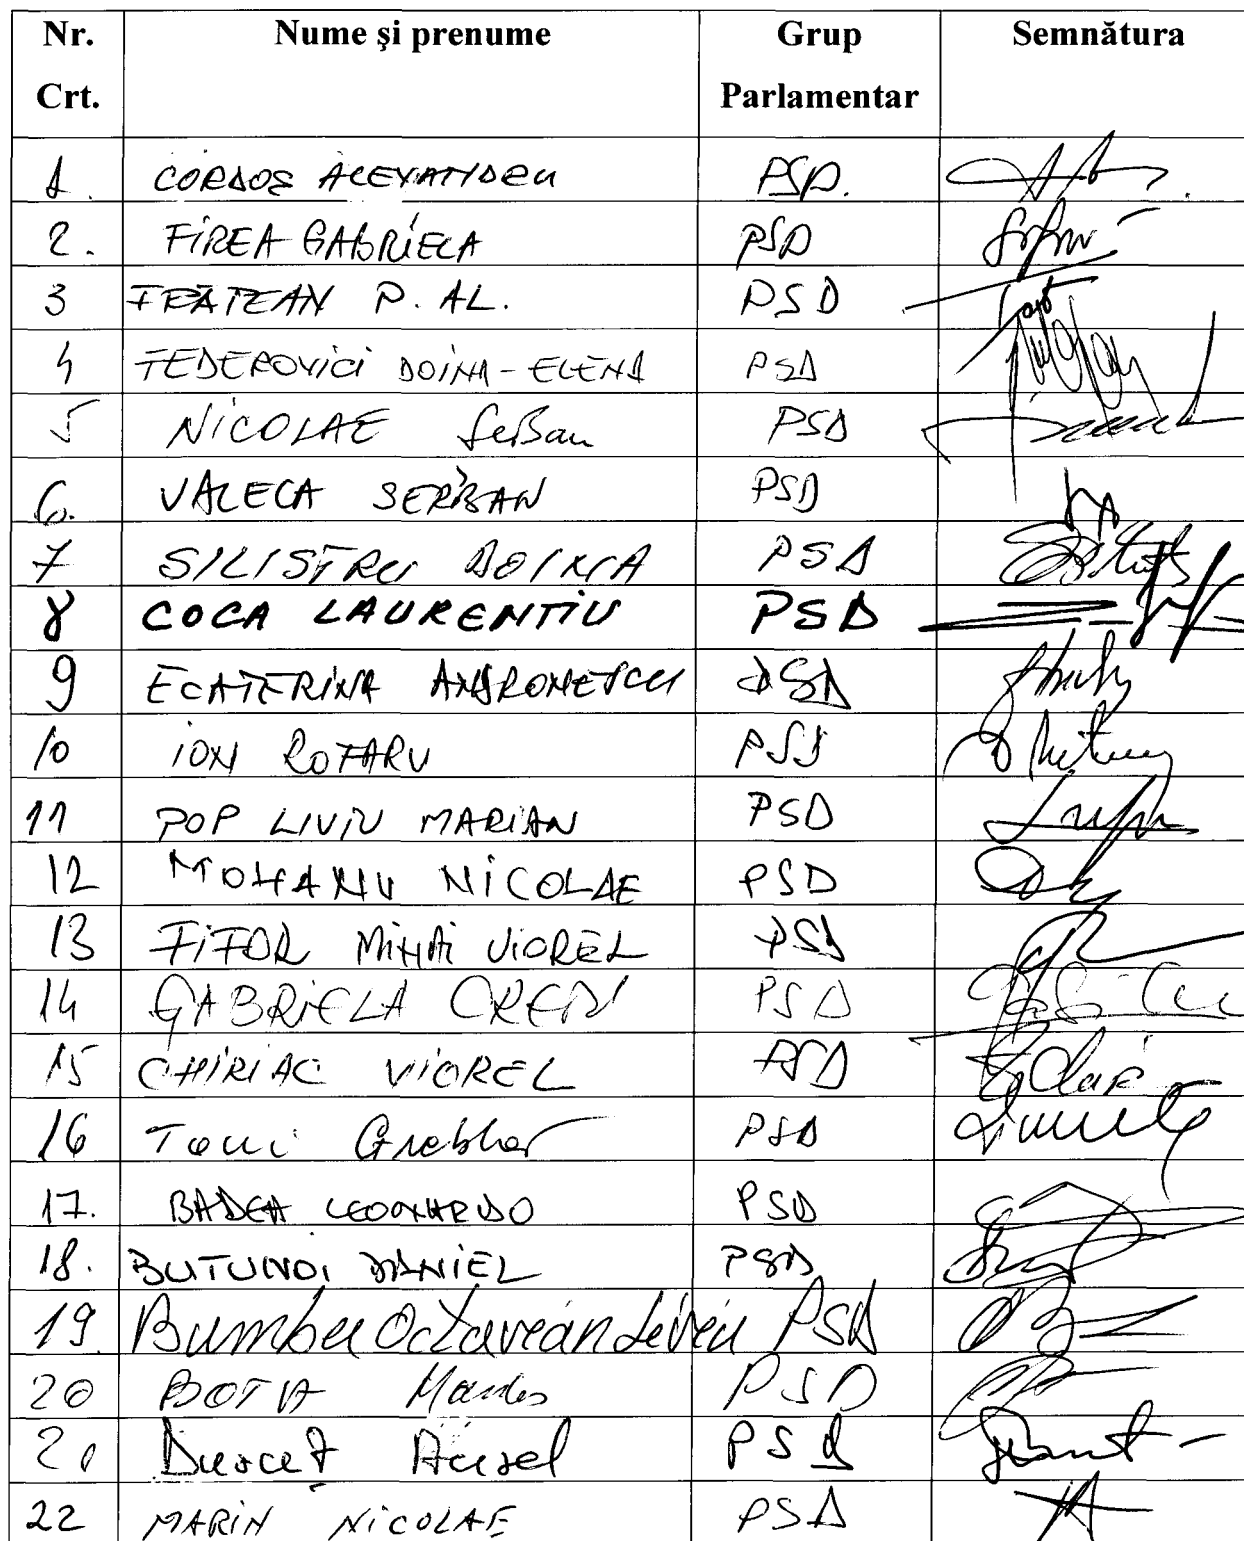 Nr. Crt. Nume și prenume Grup Parlamentar Semnătura
1. CORDOȘ ALEXANDRU PSD.
2. FIREA GABRIELA PSD
3 FRĂTEAN P. AL. PSD
4 FEDEROVICI DOINA-ELENA PSD
5 NICOLAE Șerban PSD
6. VALECA SERBAN PSD
7 SILISTRU DOINA PSD
8 COCA LAURENTIU PSD
9 ECATERINA ANDRONESCU PSD
10 ION ROTARU PSD
11 POP LIVIU MARIAN PSD
12 MOHANU NICOLAE PSD
13 FIFOR MIHAI VIOREL PSD
14 GABRIELA CREȚU PSD
15 CHIRIAC VIOREL PSD
16 Toni Greblă PSD
17. BADEA LEONARDO PSD
18. BUTUNOI DANIEL PSD
19. Bumbu Octavian Liviu PSD
20 BOTA Marius PSD
21 PSD
22 MARIN NICOLAE PSD